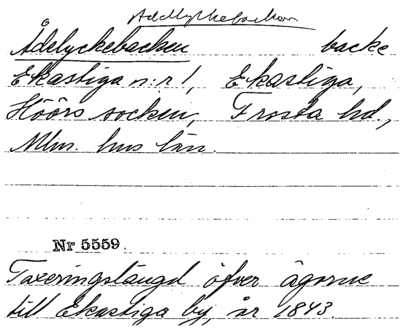 Ådelyckebacken
Ådelyckebacken backe
Ekastiga n:r 1, Ekastiga,
Höörs socken, Frosta hd.,
Mlm. hus län.
Nr 5559
Taxeringslängd öfver ägorne
till Ekastiga by, år 1843.